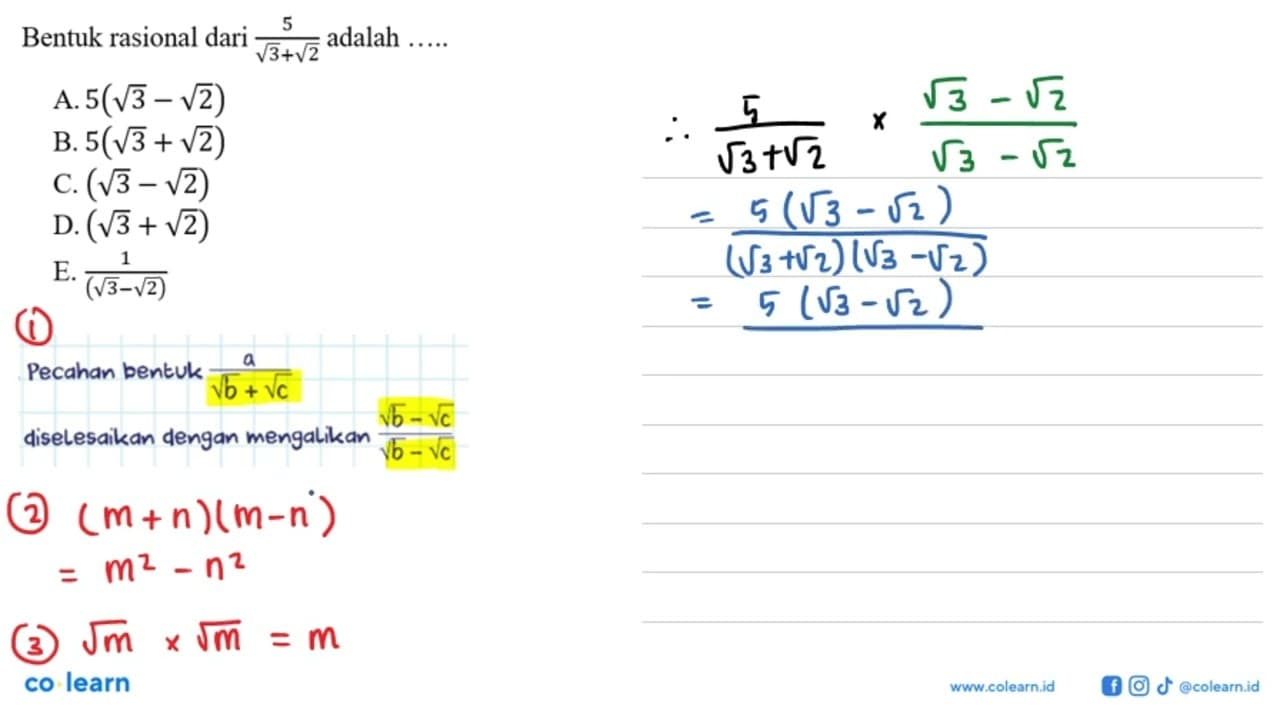 Bentuk rasional dari 5/(√3+√2) adalah .....
A. 5(√3 − √2)
B. 5(√3 + √2)
C. (√3 − √2)
D. (√3 + √2)
E. 1/((√3−√2))
①
Pecahan bentuk a/(√b + √c)
diselesaikan dengan mengalikan (√b − √c)/(√b − √c)
② (m+n)(m−n)
= m² − n²
③ √m × √m = m
co learn
∴ 5/(√3+√2) × (√3 − √2)/(√3 − √2)
= 5(√3 − √2)/((√3+√2)(√3−√2))
= 5(√3−√2)
www.colearn.id @colearn.id